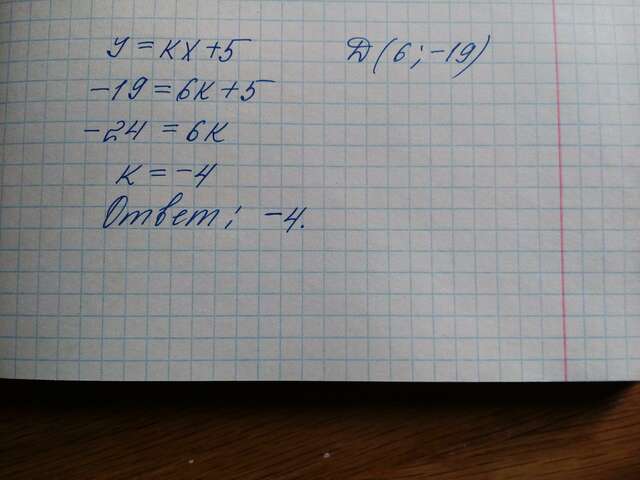 y = kx + 5 Д (6; -19)
-19 = 6k + 5
-24 = 6k
k = -4
Ответ: -4.